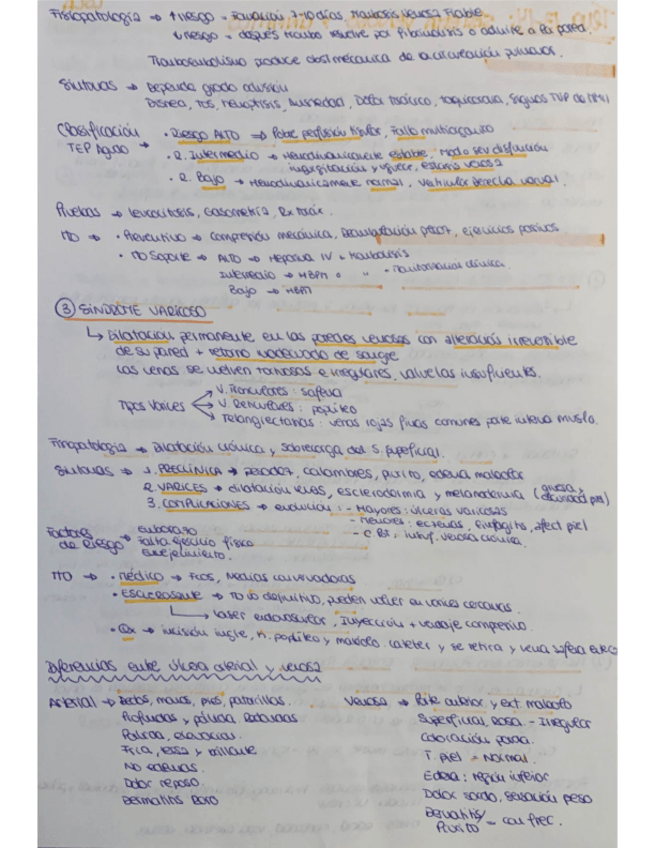 Fisiopatología → ↑ riesgo - Formación 7-10 días, trombosis venosa friable.
↓ riesgo - después trombo resuelve por fibrinolisis o adhiere a la pared.
Tromboembolismo produce obst mecánica de la circulación pulmonar.
Síntomas → Depende grado oclusión
Disnea, Tos, Hemoptisis, Ansiedad, Dolor torácico, taquicardia, signos TVP de MMII
Clasificación TEP Agudo →
· Riesgo ALTO → Pobre perfusión tisular, fallo multiorgánico
· R. Intermedio → Hemodinámicamente estable, mod o sev disfunción
ingurgitación y yugular, estasis venosa
· R. Bajo → Hemodinámicamente normal, ventrículo derecho normal.
Pruebas → Leucocitosis, Gasometría, Rx tórax.
TTO → · Preventivo → Compresión mecánica, Deambulación precoz, ejercicios pasivos
· TTO Soporte → ALTO → Heparina IV + trombolisis
Intermedio → HBPM o " + Monitorización clínica
Bajo → HBPM
③ SÍNDROME VARICOSO
↳ Dilatación permanente en las paredes venosas con alteración irreversible
de su pared + retorno inadecuado de sangre
Las venas se vuelven tortuosas e irregulares, válvulas insuficientes.
Tipos Varices
V. Tronculares: safena
V. Reticulares: poplíteo
Telangiectasias: venas rojas finas comunes parte interna muslo.
Fisiopatología → Dilatación crónica y sobrecarga del S. superficial.
Síntomas → 1. PRECLÍNICA → pesadez, calambres, prurito, edema maleolar
2. VARICES → dilatación venas, esclerodermia y melanodermia (gruesa y oscuridad piel)
3. COMPLICACIONES → evolución: - Mayores: úlceras varicosas
- Menores: eczemas, afect piel
- insuf. venosa crónica.
Factores de Riesgo →
embarazo
Falta ejercicio físico
envejecimiento.
TTO → · Médico → Fcos, Medias
· Esclerosante → TTO no definitivo, pueden volver en varices cercanas.
↳ Láser endovascular, Inyección + vendaje compresivo.
· Qx → incisión ingle, h. poplíteo y maléolo. catéter y se retira y vena safena
Diferencias entre úlcera arterial y venosa
Arterial → Dedos, manos, pies, pantorrillas.
Profundas y pálida. Redondas
Palidez, cianosis.
Fría, lisa y brillante
No edemas.
Dolor reposo.
Dermatitis Raro
Venosa → Parte anterior y ext. maléolo
Superficial, Rosa - Irregular
Coloración parda.
T. piel = Normal.
Edema: región inferior
Dolor sordo, sensación peso
Dermatitis
Prurito = con frec.